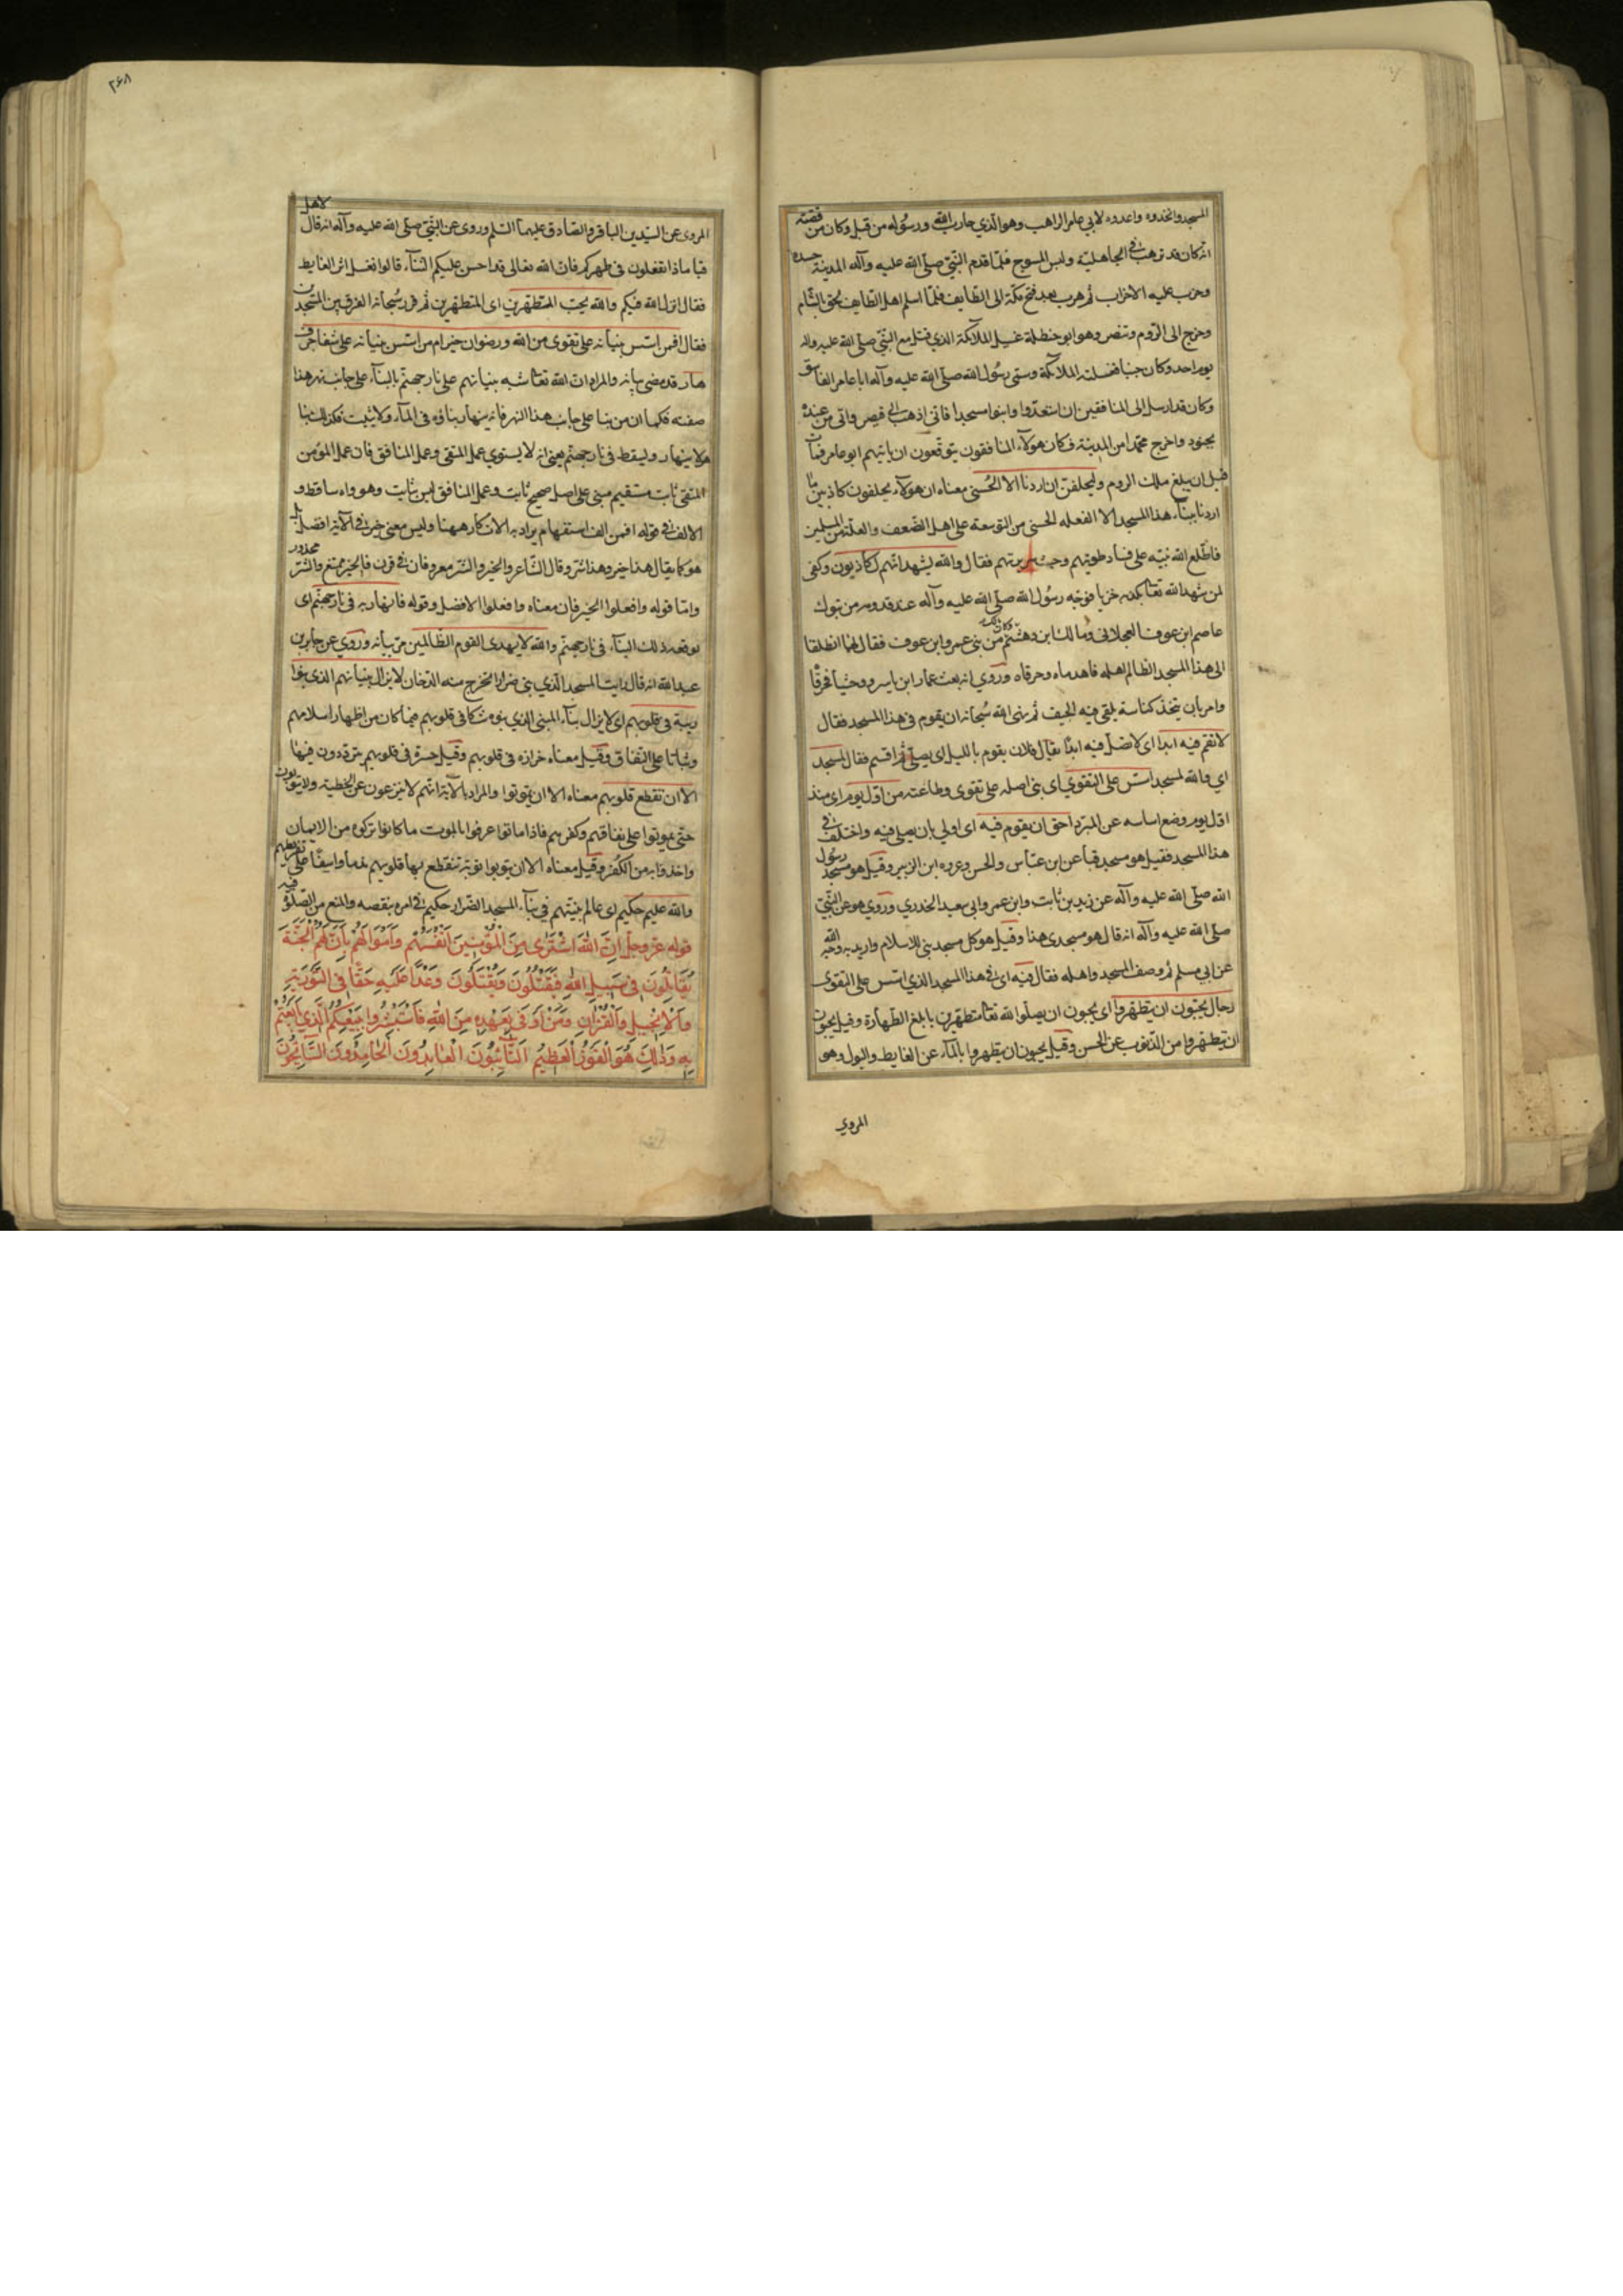 المسجد واتخذوه واعدوه لابي عامر الراهب وهو الذي حارب الله ورسوله من قبل وكان من قصته
انه كان قد ترهب في الجاهلية ولبس المسوح فلما قدم النبي صلى الله عليه وآله المدينة حسده
وحزب عليه الاحزاب ثم هرب بعد فتح مكة الى الطايف فلما اسلم اهل الطايف لحق بالشام
وخرج الى الروم وتنصر وهو ابو حنظلة غسيل الملائكة الذي قتل مع النبي صلى الله عليه واله
يوم احد وكان جنبا فغسلته الملائكة وسمى رسول الله صلى الله عليه وآله ابا عامر الفاسق
وكان قد ارسل الى المنافقين ان استعدوا وابنوا مسجدا فاني اذهب الى قيصر واتى من عنده
بجنود واخرج محمدا من المدينة فكان هولاء المنافقون يتوقعون ان ياتيهم ابو عامر فمات
قبل ان يبلغ ملك الروم وليحلفن ان اردنا الا الحسنى معناه ان هولاء يحلفون كاذبين ما
اردنا ببناء هذا المسجد الا الفعله الحسنى من التوسعة على اهل الضعف والعلة من المسلمين
فاطلع الله نبيه على فساد طويتهم وخبث سريرتهم فقال والله يشهد انهم لكاذبون وكفى
لمن شهد الله تعا بكذبه خزيا فوجه رسول الله صلى الله عليه وآله عند قدومه من تبوك
عاصم ابن عوف العجلاني ومالك ابن دخشم وكان مالك من بني عمرو ابن عوف فقال لهما انطلقا
الى هذا المسجد الظالم اهله فاهدماه وحرقاه وروي انه بعث عمار ابن ياسر ووحشيا فحرقا
وامر بان يتخذ كناسة يلقى فيه الجيف ثم نهى الله سبحانه ان يقوم في هذا المسجد فقال
لا تقم فيه ابدا اى لا تصل فيه ابدا يقال فلان يقوم بالليل اى يصلي ثم اقسم فقال لمسجد
اي والله لمسجد اسس على التقوي اى بنى اصله على تقوى وطاعته من اول يوم اى منذ
اول يوم وضع اساسه عن المبرد احق ان يقوم فيه اى اولى بان يصلى فيه واختلف في
هذا المسجد فقيل هو مسجد قبا عن ابن عباس والحسن وعروه ابن الزبير وقيل هو مسجد رسول
الله صلى الله عليه وآله عن زيد بن ثابت وابن عمر وابى سعيد الخدري وروي هو عن النبي
صلى الله عليه وآله انه قال هو مسجدى هذا وقيل هو كل مسجد بني للاسلام واريد به وجه الله
عن ابى مسلم ثم وصف المسجد واهله فقال فيه اى في هذا المسجد الذي اسس على التقوى
رجال يحبون ان يتطهروا اى يحبون ان يصلوا لله تعا متطهرين بابلغ الطهارة وقيل يحبون
ان يتطهروا من الذنوب عن الحسن وقيل يحبون ان يتطهروا بالماء عن الغايط والبول وهو
المروي
٢٦٨
المروى عن السيدين الباقر والصادق عليهما السلم وروى عن النبي صلى الله عليه وآله انه قال لاهل
قبا ماذا تفعلون فى طهركم فان الله تعالى قد احسن عليكم الثناء قالوا نغسل اثر الغايط
فقال انزل الله فيكم والله يحب المتطهرين اى المتطهرين ثم قرر سبحانه الفرق بين المسجدين
فقال افمن اسس بنيانه على تقوى من الله ورضوان خير ام من اسس بنيانه على شفا جرف
هار قد مضى بيانه والمراد ان الله تعا شبه بنيانهم على نار جهنم بالبناء على جانب نهر هذا
صفته فكما ان من بنا على جانب هذا النهر فانه ينهار بناؤه فى الماء ولا يثبت فكذلك بنا
هولا ينهار ويسقط فى نار جهنم يعنى انه لا يستوي عمل المتقى وعمل المنافق فان عمل المؤمن
المتقى ثابت مستقيم مبنى على اصل صحيح ثابت وعمل المنافق ليس بثابت وهو واه ساقط و
الالف في قوله افمن الف استفهام يراد به الانكار ههنا وليس معنى خير في الآية افضل بل
هو كما يقال هذا خير وهذا شر وقال الشاعر والخير والشر معروفان في قرن فالخير متبع والشر محذور
واما قوله وافعلوا الخير فان معناه وافعلوا الافضل وقوله فانهار به فى نار جهنم اى
يوقعه ذلك البناء فى نار جهنم والله لا يهدى القوم الظالمين مر بيانه وروي عن جابر بن
عبد الله انه قال رايت المسجد الذي بنى ضرارا يخرج منه الدخان لا يزال بنيانهم الذى بنوا
ريبة فى قلوبهم اى لا يزال بناء المبنى الذي بنوه شكا فى قلوبهم فيما كان من اظهار اسلامهم
وثباتا على النفاق وقيل معناه حزازه فى قلوبهم وقيل حسرة فى قلوبهم يترددون فيها
الا ان تقطع قلوبهم معناه الا ان يموتوا والمراد بالآية انهم لا ينزعون عن الخطية ولا يتوبون
حتى يموتوا على نفاقهم وكفرهم فاذا ماتوا عرفوا بالموت ما كانوا تركوه من الايمان
واخذوا به من الكفر وقيل معناه الا ان يتوبوا توبة تتقطع بها قلوبهم ندما واسفا على تفريطهم
والله عليم حكيم اى عالم بنيتهم في بناء المسجد الضرار حكيم في امره بنقضه والمنع من الصلوة فيه
قوله عز وجل اِنَّ اللهَ اشْتَرٰى مِنَ الْمُؤْمِنِينَ اَنْفُسَهُمْ وَاَمْوَالَهُمْ بِاَنَّ لَهُمُ الْجَنَّةَ
يُقَاتِلُونَ فِى سَبِيلِ اللهِ فَيَقْتُلُونَ وَيُقْتَلُونَ وَعْدًا عَلَيْهِ حَقًّا فِى التَّوْرٰيةِ
وَالْاِنْجِيلِ وَالْقُرْاٰنِ وَمَنْ اَوْفٰى بِعَهْدِهِ مِنَ اللهِ فَاسْتَبْشِرُوا بِبَيْعِكُمُ الَّذِي بَايَعْتُمْ
بِهِ وَذٰلِكَ هُوَ الْفَوْزُ الْعَظِيمُ اَلتَّآئِبُونَ الْعَابِدُونَ الْحَامِدُونَ السَّآئِحُونَ